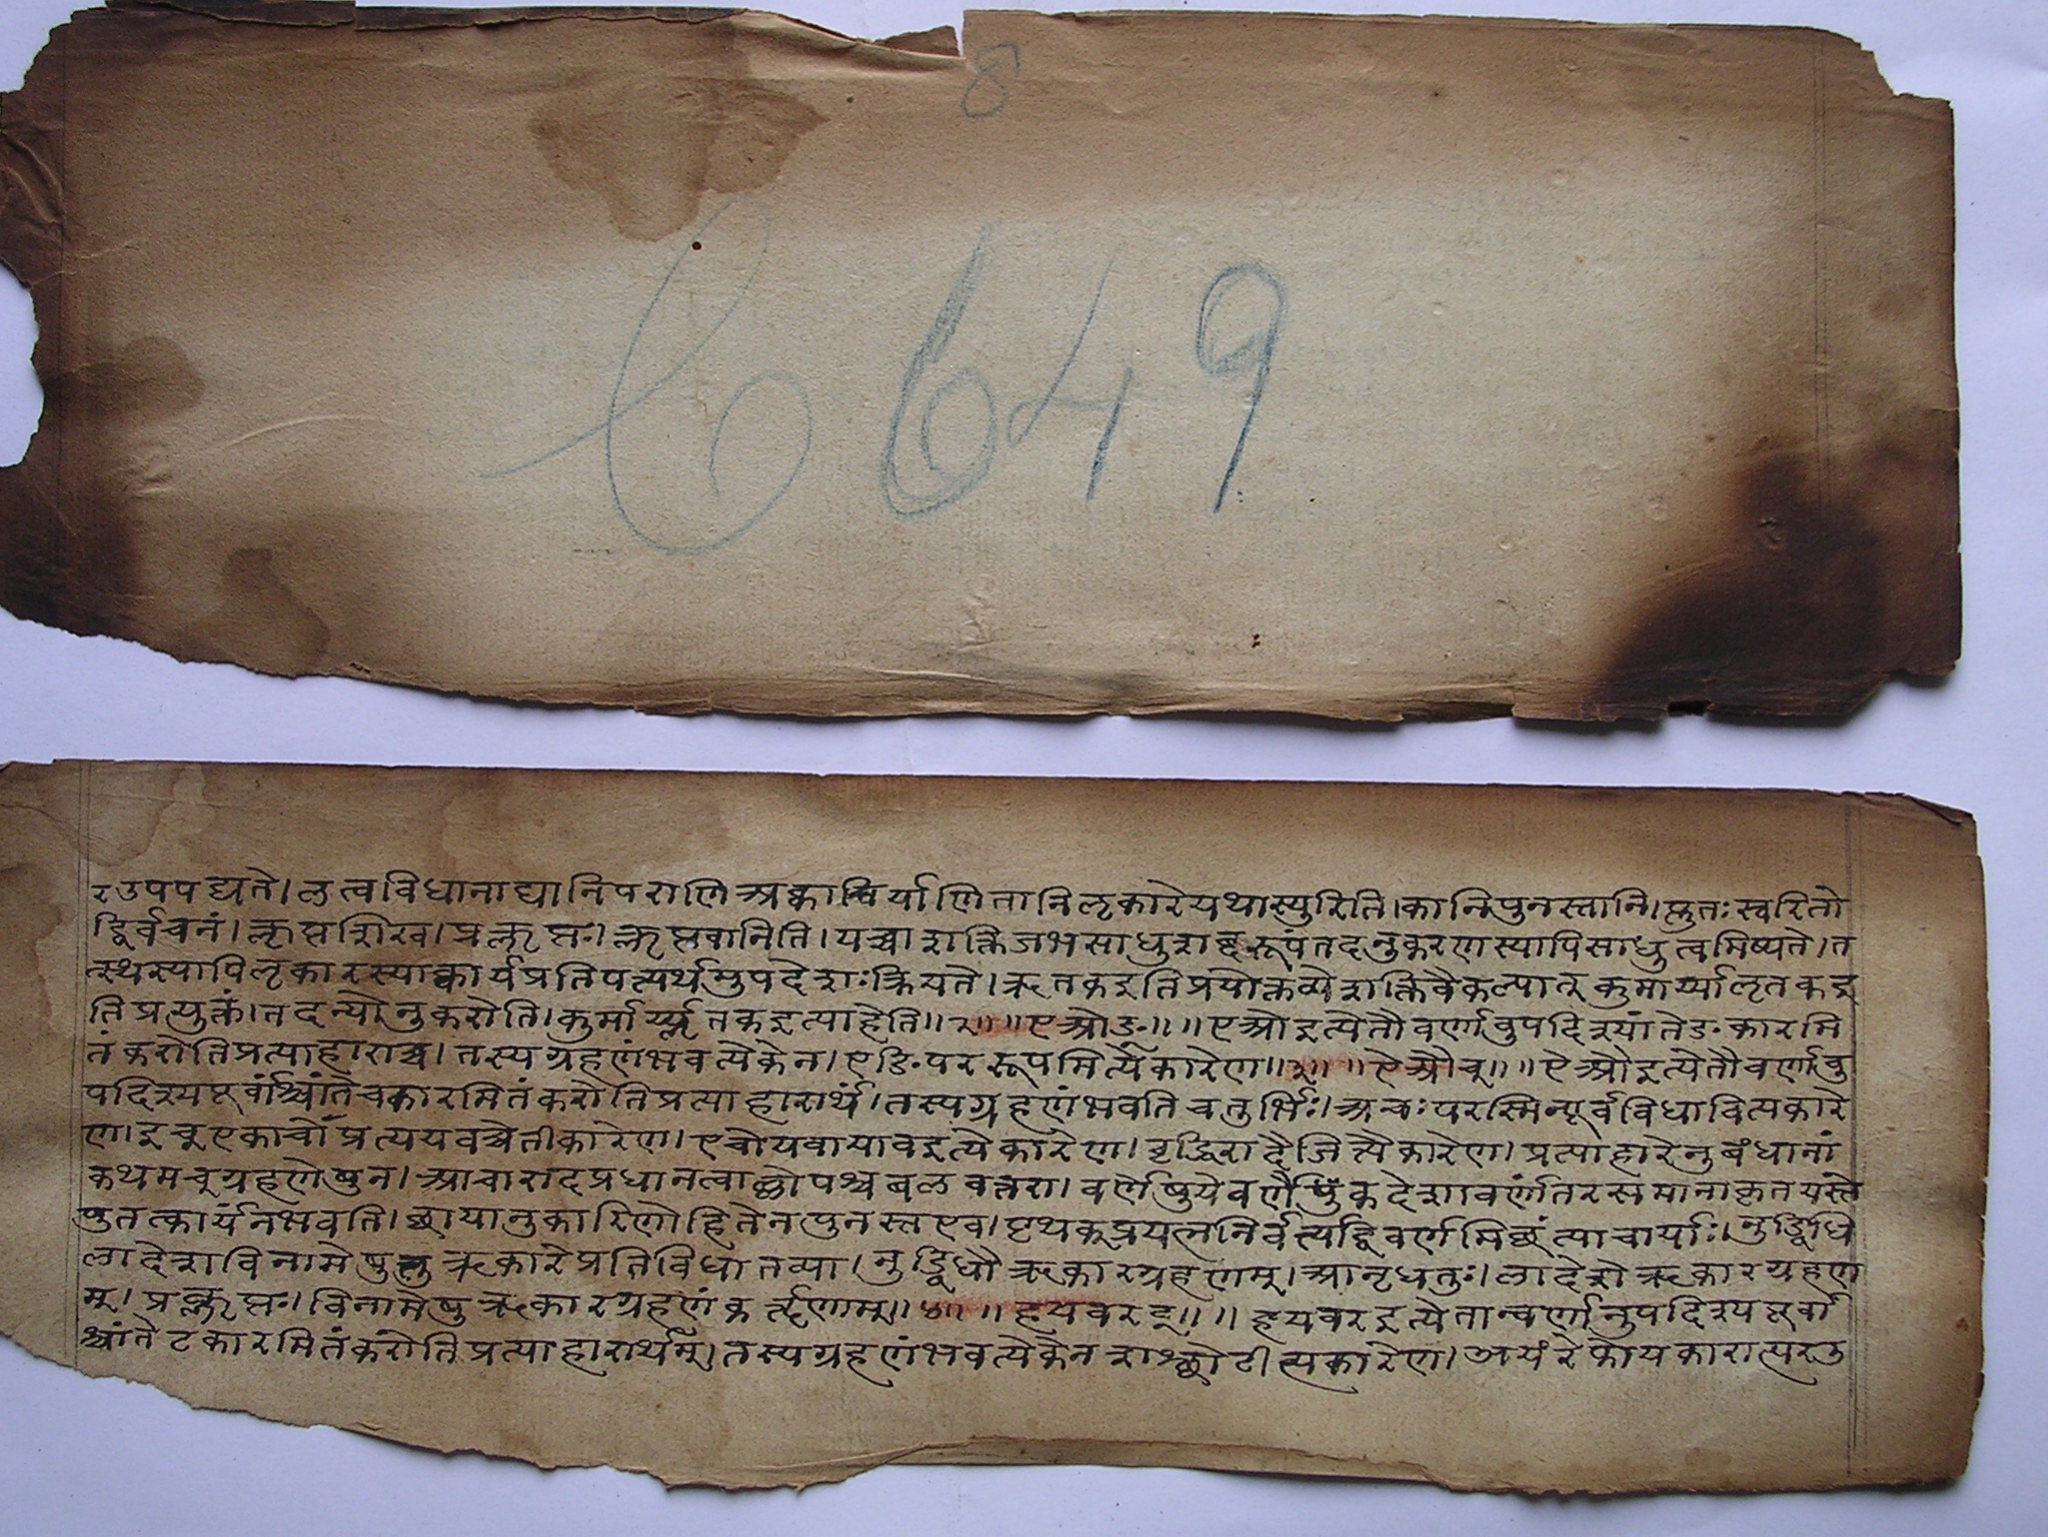 6649
र उपपद्यते। लत्वविधानाद्यानिपराणि अच्कार्याणि तानि लृकारे यथास्युरिति। कानि पुनस्तानि। प्लुतः स्वरितो
द्विर्वचनं। क्लृप्तशिख। प्रक्लृप्तः। क्लृप्तवानिति। यच्चाशक्तिजमसाधुशब्दरूपं तदनुकरणस्यापि साधुत्वमिष्यते। त
त्स्थस्यापि लृकारस्याच्कार्यप्रतिपत्यर्थमुपदेशः क्रियते। ऋतक इति प्रयोक्तव्ये शक्तिवैकल्यात् कुमार्य्या लृतक इ
ति प्रत्युक्तं। तदन्योनुकरोति। कुमार्य्यॢतक इत्याहेति॥२॥ ॥एओङ्॥ ॥एओ इत्येतौ वर्णावुपदिश्यांते ङकारमि
तं करोति प्रत्याहारार्थं। तस्य ग्रहणं भवत्येकेन। एङि पररूपमित्येकारेण॥३॥ ॥ऐऔच्॥ ॥ऐऔ इत्येतौ वर्णावु
पदिश्य पूर्वांश्चांते चकारमितं करोति प्रत्याहारार्थं। तस्य ग्रहणं भवति चतुर्भिः। अचः परस्मिन्पूर्वविधावित्यकारे
ण। इच् एकाचों प्रत्ययवच्चेतीकारेण। एचोयवायाव इत्येकारेण। वृद्धिरादैजित्यैकारेण। प्रत्याहारेनुबंधानां
कथमच्ग्रहणेषु न। आचारादप्रधानत्वाल्लोपश्च बलवत्तरा। वर्णेषु ये वर्णैकदेशा वर्णांतरसमानाकृतयस्ते
षु तत्कार्यं न भवति। छायानुकारिणो हि ते न पुनस्त एव। पृथक्प्रयत्ननिर्वर्त्यं हि वर्णमिच्छंत्याचार्याः। नुड्विधि
लादेशविनामेषु तु ऋकारे प्रतिविधातव्या। नुड्विधौ ऋकारग्रहणम्। आनृधतुः। लादेशे ऋकारग्रहण
म्। प्रक्लृप्तः। विनामेषु ऋकारग्रहणं कर्त्तॄणाम्॥४॥ ॥हयवरट्॥ ॥हयवर इत्येतान्वर्णानुपदिश्य पूर्वां
श्चांते टकारमितं करोति प्रत्याहारार्थम्। तस्य ग्रहणं भवत्येकेन शश्छोटीत्यकारेण। अयं रेफो यकारात्पर उ